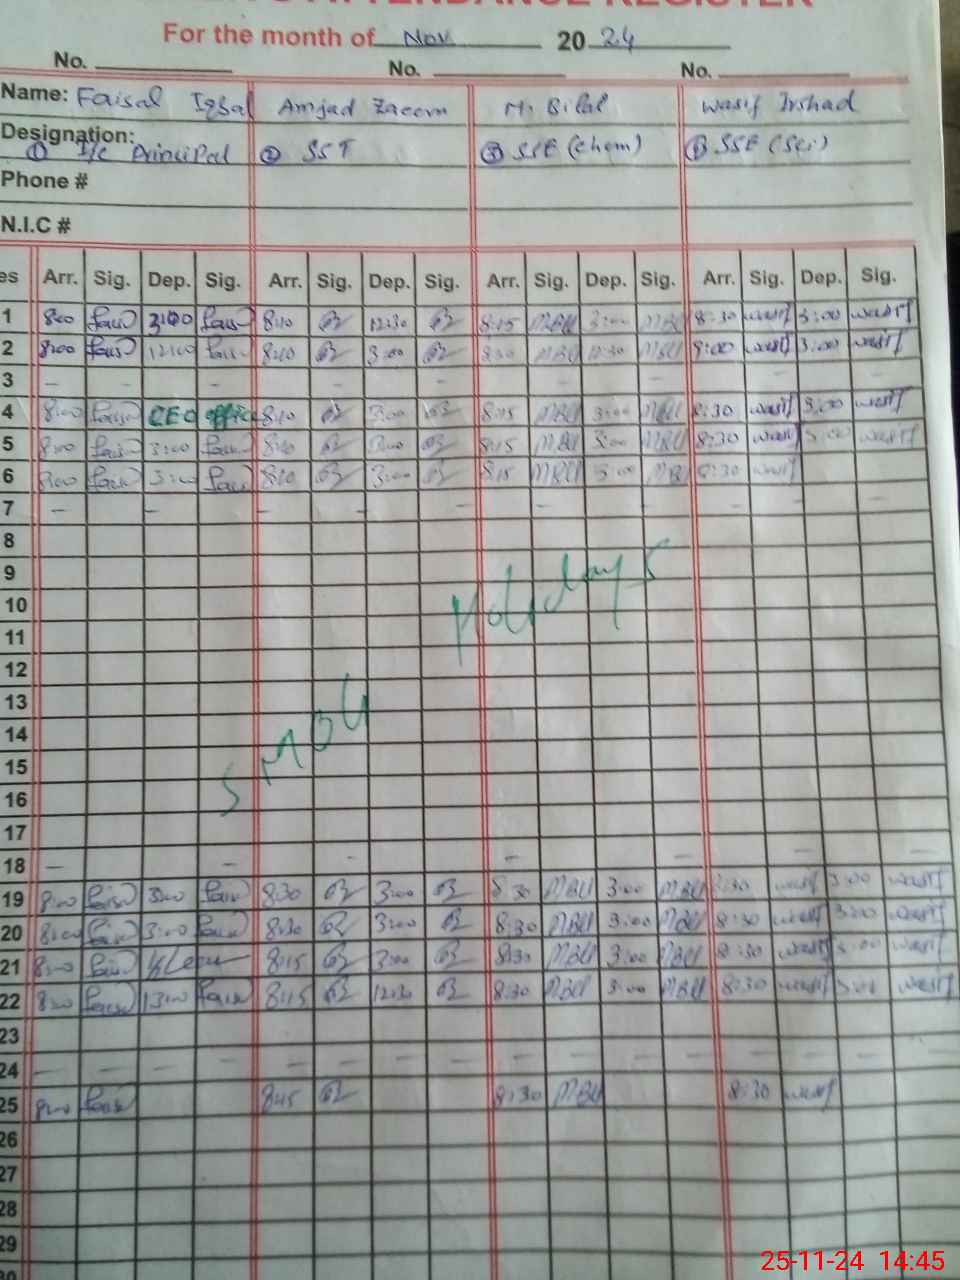 ATTENDANCE REGISTER
For the month of Nov 2024
No. No. No.
Name: Faisal Iqbal Amjad Zaeem M. Bilal Wasif Irshad
Designation: ① I/C Principal ② SST ③ SSE (Chem) SSE (Sci)
Phone #
N.I.C #
es Arr. Sig. Dep. Sig. Arr. Sig. Dep. Sig. Arr. Sig. Dep. Sig. Arr. Sig. Dep. Sig.
1 8:00 3:00 8:10 12:30 8:15 MBU 3:00 MBU 8:30 wasif 3:00 wasif
2 8:00 12:00 8:10 3:00 8:30 MBU 12:30 MBU 8:00 wasif 3:00 wasif
3 – – – – – – –
4 8:00 CEO office 8:10 3:00 8:15 MBU 3:00 MBU 8:30 wasif 3:00 wasif
5 8:00 3:00 8:10 3:00 8:15 MBU 3:00 MBU 8:30 wasif 3:00 wasif
6 8:00 3:00 8:10 3:00 8:15 MBU 3:00 MBU 8:30 wasif
7 – – – – – – – –
8
9 Holidays
10
11
12
13
14 SMOG
15
16
17
18 – – – – – –
19 8:00 3:00 8:30 3:00 8:30 MBU 3:00 MBU 8:30 wasif 3:00 wasif
20 8:00 3:00 8:30 3:00 8:30 MBU 3:00 MBU 8:30 wasif 3:00 wasif
21 8:00 8:15 3:00 8:30 MBU 3:00 MBU 8:30 wasif 3:00 wasif
22 8:00 8:15 12:30 8:30 MBU 3:00 MBU 8:30 wasif 3:00 wasif
23
24 – – – – – – – –
25 8:00 8:15 8:30 MBU 8:30 wasif
26
27
28
29
30
25-11-24 14:45